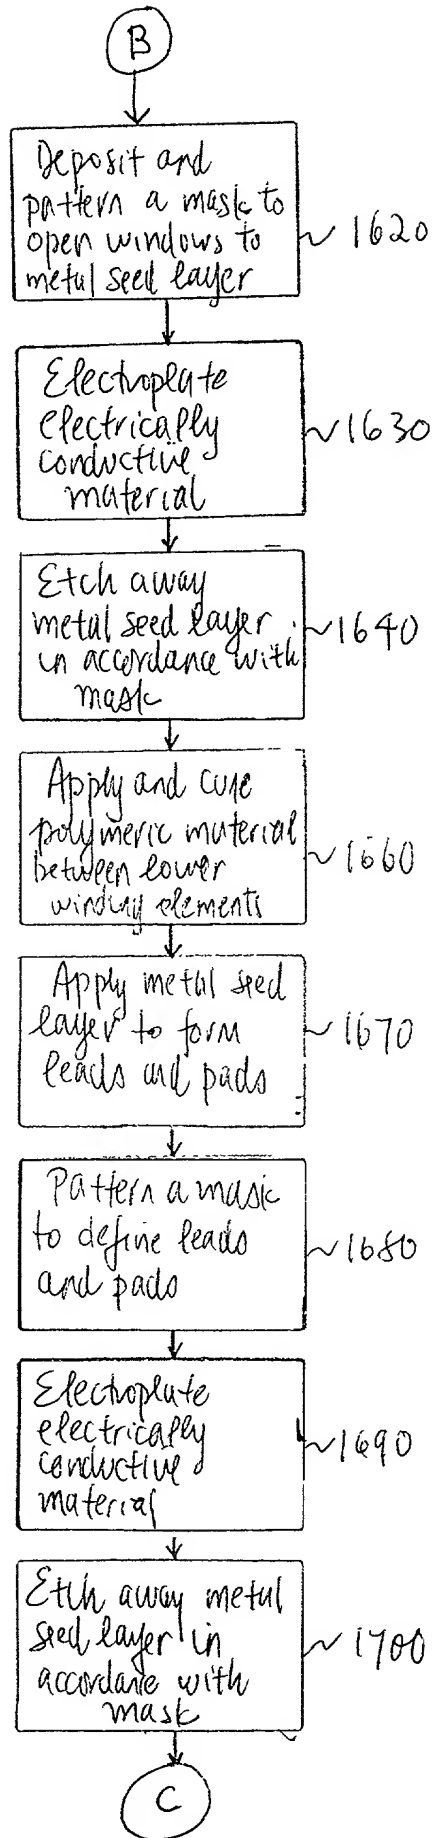 B
Deposit and
pattern a mask to
open windows to
metal seed layer
1620
Electroplate
electrically
conductive
material
1630
Etch away
metal seed layer
in accordance with
mask
1640
Apply and cure
polymeric material
between lower
winding elements
1660
Apply metal seed
layer to form
leads and pads
1670
Pattern a mask
to define leads
and pads
1680
Electroplate
electrically
conductive
material
1690
Etch away metal
seed layer in
accordane with
mask
1700
C